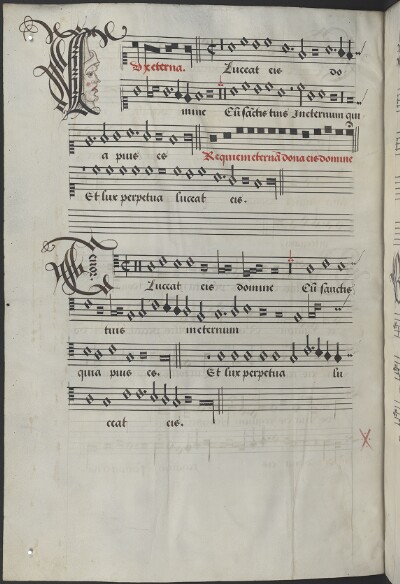 Vx eterna. Luceat eis do
mine Cū sāctis tuis In eternum qui
a pius es Requiem eternā dona eis domine
Et lux perpetua luceat eis.
Tenor. Luceat eis domine Cū sanctis
tuis in eternum
quia pius es. Et lux perpetua lu
ceat eis.